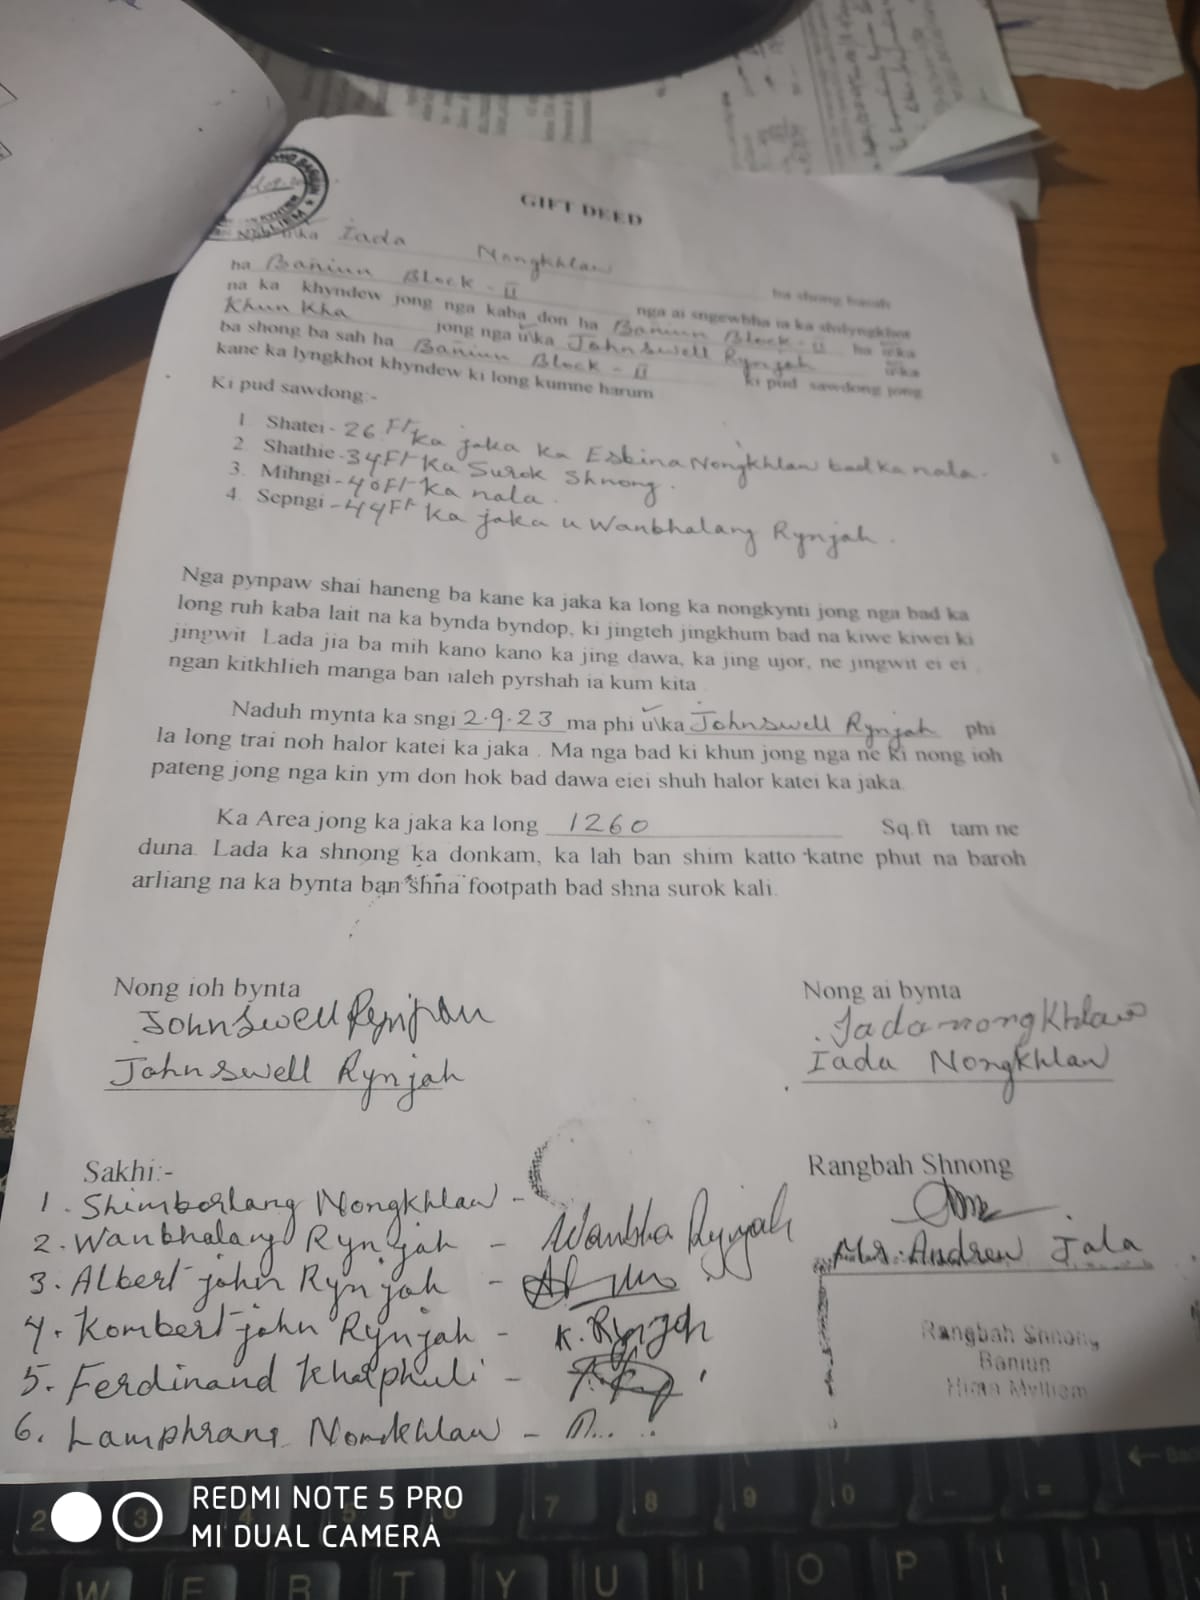 GIFT DEED
Nga u\ka Iada Nongkhlaw ba shong basah
ha Baniun Block - II nga ai sngewbha ia ka shilyngkhot
na ka khyndew jong nga kaba don ha Baniun Block - II ha u\ka
Khun Kha jong nga u\ka Johnswell Rynjah u\ka
ba shong ba sah ha Baniun Block - II ki pud sawdong jong
kane ka lyngkhot khyndew ki long kumne harum
Ki pud sawdong:-
1. Shatei - 26 Ft ka jaka ka Esbina Nongkhlaw bad ka nala.
2. Shathie - 34 Ft ka Surok Shnong.
3. Mihngi - 40 Ft ka nala.
4. Sepngi - 44 Ft ka jaka u Wanbhalang Rynjah.
Nga pynpaw shai haneng ba kane ka jaka ka long ka nongkynti jong nga bad ka
long ruh kaba lait na ka bynda byndop, ki jingteh jingkhum bad na kiwe kiwei ki
jingwit. Lada jia ba mih kano kano ka jing dawa, ka jing ujor, ne jingwit ei ei
ngan kitkhlieh manga ban ialeh pyrshah ia kum kita
Naduh mynta ka sngi 2.9.23 ma phi u\ka Johnswell Rynjah phi
la long trai noh halor katei ka jaka . Ma nga bad ki khun jong nga ne ki nong ioh
pateng jong nga kin ym don hok bad dawa eiei shuh halor katei ka jaka.
Ka Area jong ka jaka ka long 1260 Sq.ft tam ne
duna. Lada ka shnong ka donkam, ka lah ban shim katto katne phut na baroh
arliang na ka bynta ban shna footpath bad shna surok kali.
Nong ioh bynta
Johnswell Rynjah
Johnswell Rynjah
Nong ai bynta
Iada nongkhlaw
Iada Nongkhlaw
Sakhi:-
1. Shimborlang Nongkhlaw -
2. Wanbhalang Rynjah - Wanbha Rynjah
3. Albert john Rynjah -
4. Kombert john Rynjah - K. Rynjah
5. Ferdinand Kharphuli -
6. Lamphrang Nongkhlaw -
Rangbah Shnong
Mr. Andrew Jala
Rangbah Shnong
Baniun
Hima Mylliem
REDMI NOTE 5 PRO
MI DUAL CAMERA